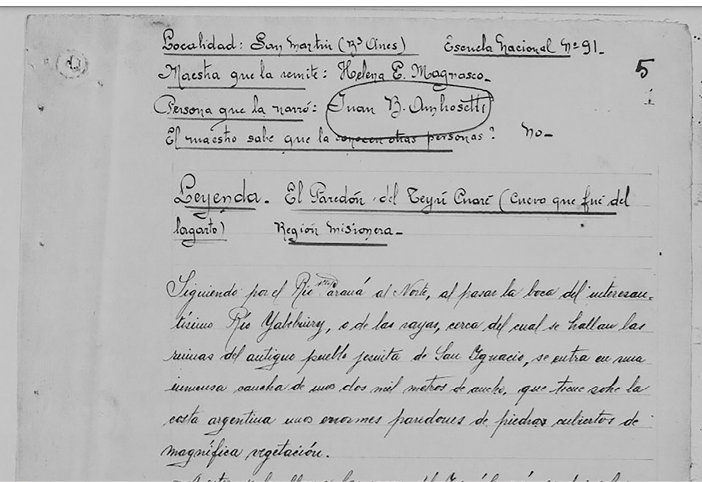 Localidad: San Martín (Bs Aires) Escuela Nacional Nº 91_
5
Maestra que la remite: Helena E. Magnasco_
Persona que la narró: Juan B. Ambrosetti
El maestro sabe que la conocen otras personas? No_
Leyenda_ El Paredón del Teyú Cuaré (Cueva que fué del
lagarto) Región Misionera_
Siguiendo por el Río Paraná al Norte, al pasar la boca del interesan-
tísimo Río Yabebiry, o de las rayas, cerca del cual se hallan las
ruinas del antiguo pueblo jesuita de San Ignacio, se entra en una
inmensa cancha de unos dos mil metros de ancho, que tiene sobre la
costa argentina unos enormes paredones de piedras cubiertos de
magnífica vegetación.